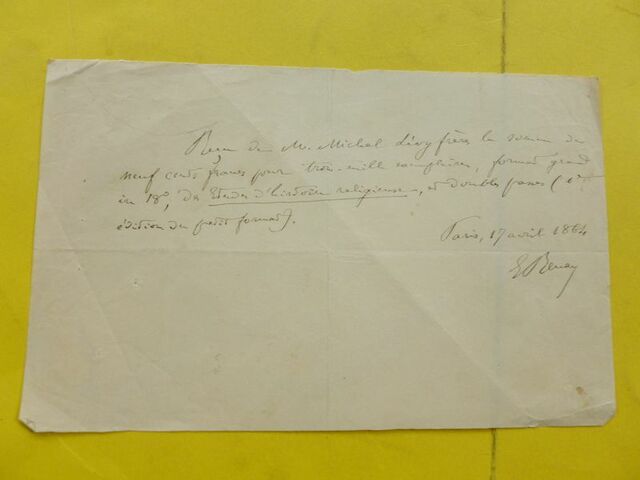 Reçu de M. Michel Lévy frères la somme de
neuf cents francs pour trois mille exemplaires, format grand
in 18°, des Etudes d'histoire religieuse, et doubles passes (
édition du petit format).
Paris, 17 avril 1864
E Renan